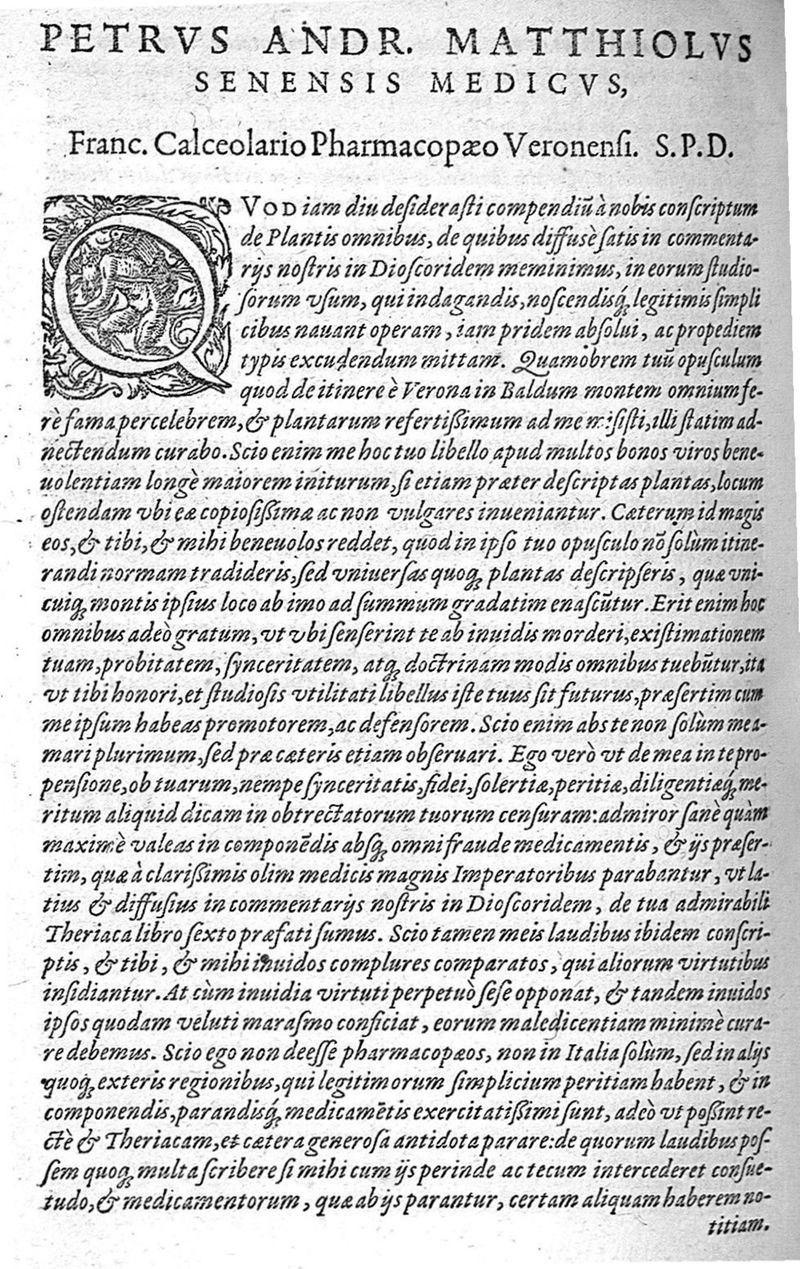 PETRVS ANDR. MATTHIOLVS
SENENSIS MEDICVS,
Franc. Calceolario Pharmacopæo Veronenſi. S.P.D.
QVOD iam diu deſideraſti compendiũ à nobis conſcriptum
de Plantis omnibus, de quibus diffusè ſatis in commenta-
rijs noſtris in Dioſcoridem meminimus, in eorum ſtudio-
ſorum vſum, qui indagandis, noſcendisq́; legitimis ſimpli
cibus nauant operam, iam pridem abſolui, ac propediem
typis excudendum mittam. Quamobrem tuũ opuſculum
quod de itinere è Verona in Baldum montem omnium fe-
rè fama percelebrem, & plantarum refertißimum ad me misiſti, illi ſtatim ad-
nectendum curabo. Scio enim me hoc tuo libello apud multos bonos viros bene-
uolentiam longè maiorem initurum, ſi etiam præter deſcriptas plantas, locum
oſtendam vbi eæ copioſißimæ ac non vulgares inueniantur. Cæterum id magis
eos, & tibi, & mihi beneuolos reddet, quod in ipſo tuo opuſculo nõ ſolùm itine-
randi normam tradideris, ſed vniuerſas quoq; plantas deſcripſeris, quæ vni-
cuiq; montis ipſius loco ab imo ad ſummum gradatim enaſcũtur. Erit enim hoc
omnibus adeò gratum, vt vbi ſenſerint te ab inuidis morderi, exiſtimationem
tuam, probitatem, ſynceritatem, atq; doctrinam modis omnibus tuebũtur, ita
vt tibi honori, et ſtudioſis vtilitati libellus iſte tuus ſit futurus, præſertim cum
me ipſum habeas promotorem, ac defenſorem. Scio enim abs te non ſolùm me a-
mari plurimum, ſed præ cæteris etiam obſeruari. Ego verò vt de mea in te pro-
penſione, ob tuarum, nempe ſynceritatis, fidei, ſolertiæ, peritiæ, diligentiæq́; me-
ritum aliquid dicam in obtrectatorum tuorum cenſuram: admiror ſanè quàm
maximè valeas in componẽdis absq; omni fraude medicamentis, & ijs præſer-
tim, quæ à clarißimis olim medicis magnis Imperatoribus parabantur, vt la-
tius & diffuſius in commentarijs noſtris in Dioſcoridem, de tua admirabili
Theriaca libro ſexto præfati ſumus. Scio tamen meis laudibus ibidem conſcri-
ptis, & tibi, & mihi inuidos complures comparatos, qui aliorum virtutibus
inſidiantur. At cùm inuidia virtuti perpetuò ſeſe opponat, & tandem inuidos
ipſos quodam veluti maraſmo conficiat, eorum maledicentiam minimè cura-
re debemus. Scio ego non deeſſe pharmacopæos, non in Italia ſolùm, ſed in alijs
quoq; exteris regionibus, qui legitimorum ſimplicium peritiam habent, & in
componendis, parandisq́; medicamẽtis exercitatißimi ſunt, adeò vt poßint re-
ctè & Theriacam, et cætera generoſa antidota parare: de quorum laudibus poſ-
ſem quoq; multa ſcribere ſi mihi cum ijs perinde ac tecum intercederet conſue-
tudo, & medicamentorum, quæ ab ijs parantur, certam aliquam haberem no-
titiam.